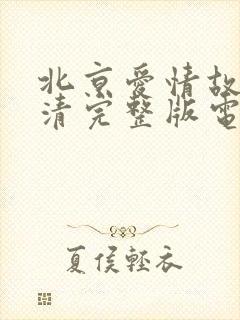 北京爱情故
清完整版電
夏侯輕衣